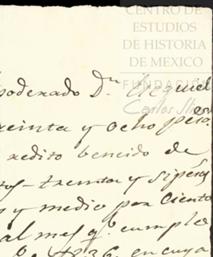 CENTRO DE
ESTUDIOS
DE HISTORIA
DE MEXICO
FUNDACIÓN
Carlos Slim
poderado Dn. Ezequiel
reinta y ocho pesos
redito bencido de
tos treinta y
s y medio por ciento
al mes qe. cumple
en cuya